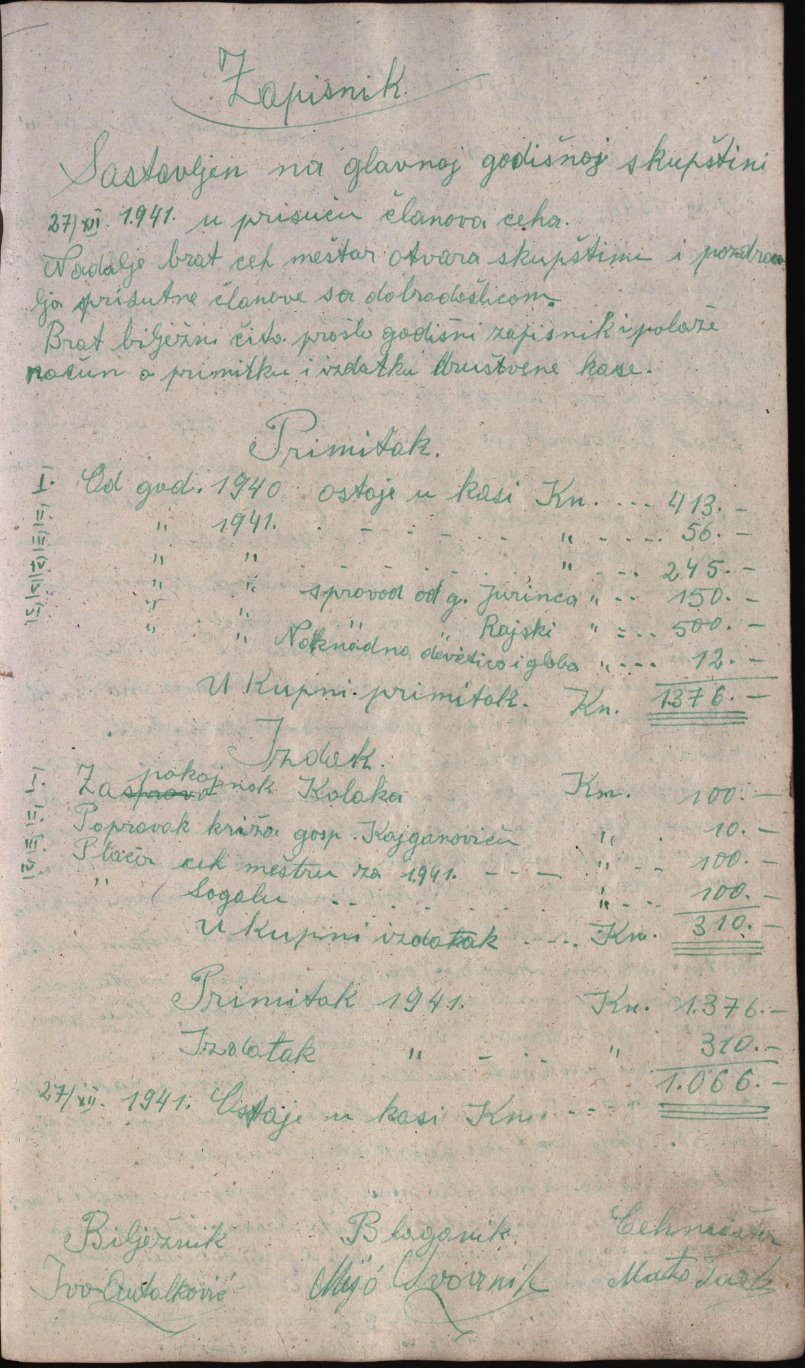 Zapisnik.
Sastavljen na glavnoj godišnoj skupštini
27/XII. 1941. u prisuću članova ceha.
Nadalje brat ceh meštar otvara skupštinu i pozdrav
lja prisutne članove sa dobrodošlicom.
Brat bilježni čita prošlo godišni zapisnik i polaže
račun o primitku i izdatku društvene kase.
Primitak.
Od god. 1940 ostaje u kasi Kn. ... 413.-
" 1941. . - - - - - " - - - 56.-
" " - - - - - - " - - 245.-
" " sprovod od g. Jurinca " - - 150.-
" " " Rajski " - - 500.-
" " Noknadno devetica i globa " - - - 12.-
U Kupni primitak. Kn. 1376.-
Izdek.
Za sprovod pokojnok Kolaka Kn. 100.-
Popravak križa gosp. Kajganoviću " . 10.-
Plaća ceh meštru za 1941. - - - " - . 100.-
" Sogalu - - - - - - " . . 100.-
U Kupni izdatak - - - . Kn. 310.-
Primitak 1941. Kn. 1.376.-
Izdatak " - . . " 310.-
1.066.-
27/XII. 1941. Ostaje u kasi Kn. - - -
Bilježnik Blaganik Cehmeštar
Ivo Mijó Mato